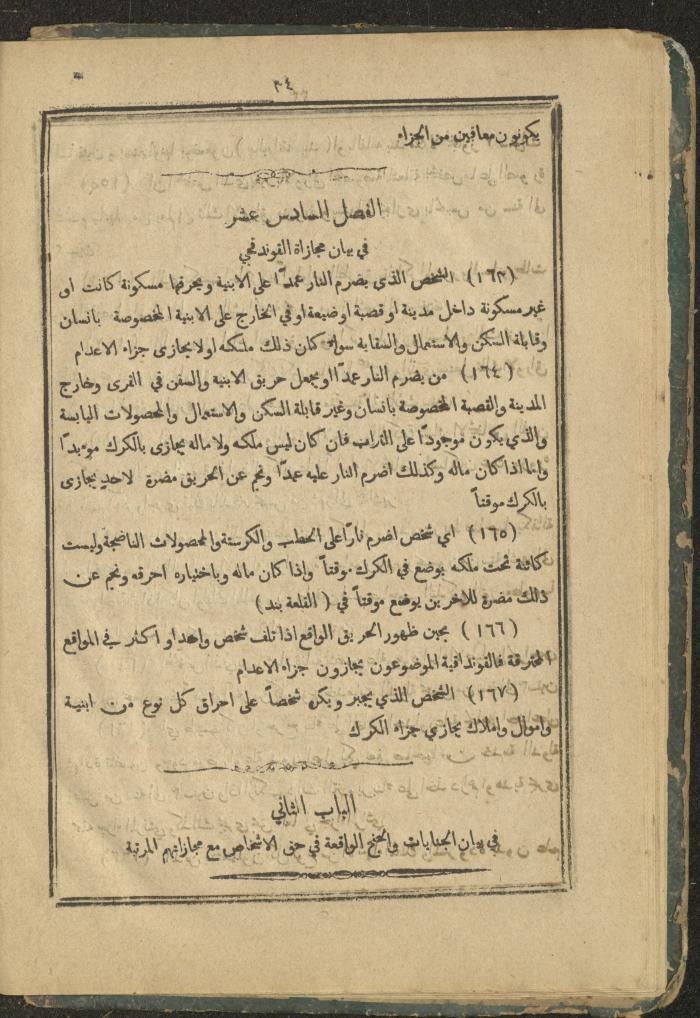 ٣٤
يكونون معافين من الجزاء
الفصل السادس عشر
في بيان مجازاة القوندقجي
(١٦٣) الشخص الذي يضرم النار عمدًا على الابنية ويحرقها مسكونة كانت او
غير مسكونة داخل مدينة او قصبة او ضيعة او في الخارج على الابنية المخصوصة بانسان
وقابلة السكن والاستعمال والسقابه سواء كان ذلك ملكه اولا يجازى جزاء الاعدام
(١٦٤) من يضرم النار عمدًا او يجعل حريق الابنية والسفن في القرى وخارج
المدينة والقصبة المخصوصة بانسان وغير قابلة السكن والاستعمال والمحصولات اليابسة
والذي يكون موجودًا على التراب فان كان ليس ملكه ولا ماله يجازى بالكرك موءبدًا
واما اذا كان ماله وكذلك اضرم النار عليه عمدًا ونجم عن الحريق مضرة لاحدٍ يجازى
بالكرك موقتاً
(١٦٥) اي شخص اضرم نارًا على الحطب والكرستة والمحصولات الناضجة وليست
كائنة تحت ملكه يوضع في الكرك موقتاً واذا كان ماله وباختياره احرقه ونجم عن
ذلك مضرة للاخرين يوضع موقتاً في (القلعة بند)
(١٦٦) بحين ظهور الحريق الواقع اذا تلف شخص واحد او اكثر في المواقع
المحترقة فالقونداقية الموضوعون يجازون جزاء الاعدام
(١٦٧) الشخص الذي يجبر ويكره شخصاً على احراق كل نوع من ابنية
واموال واملاك يجازي جزاء الكرك
الباب الثاني
في بيان الجنايات والجنح الواقعة في حق الاشخاص مع مجازاتهم المرتبة